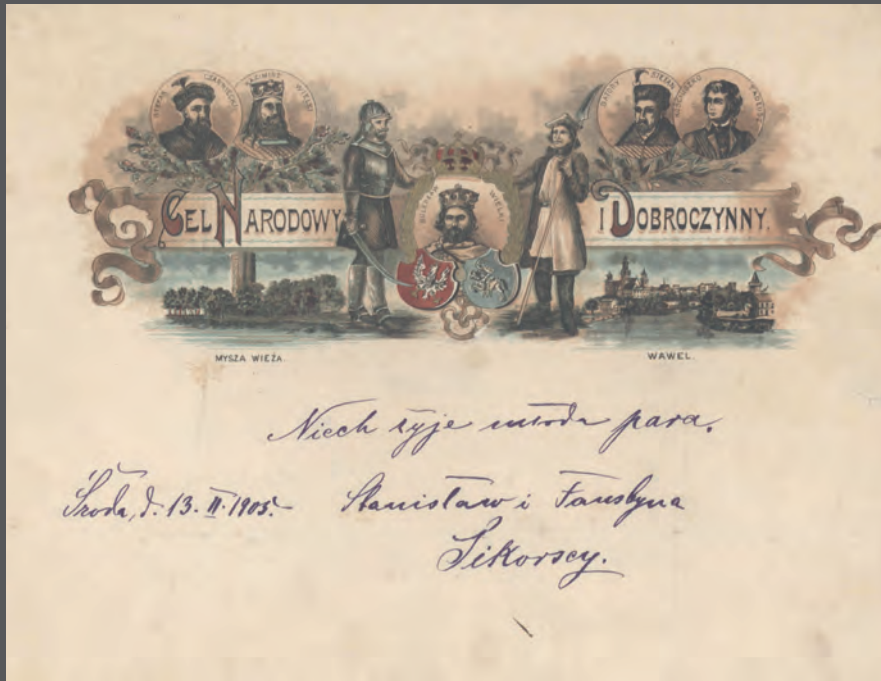 STEFAN CZARNIECKI
KAZIMIERZ WIELKI
BATORY STEFAN
KOŚCIUSZKO TADEUSZ
BOLESŁAW WIELKI
CEL NARODOWY I DOBROCZYNNY.
MYSZA WIEŻA.
WAWEL.
Niech żyje młoda para.
Środa, d. 13. II. 1905. Stanisław i Faustyna
Sikorscy.